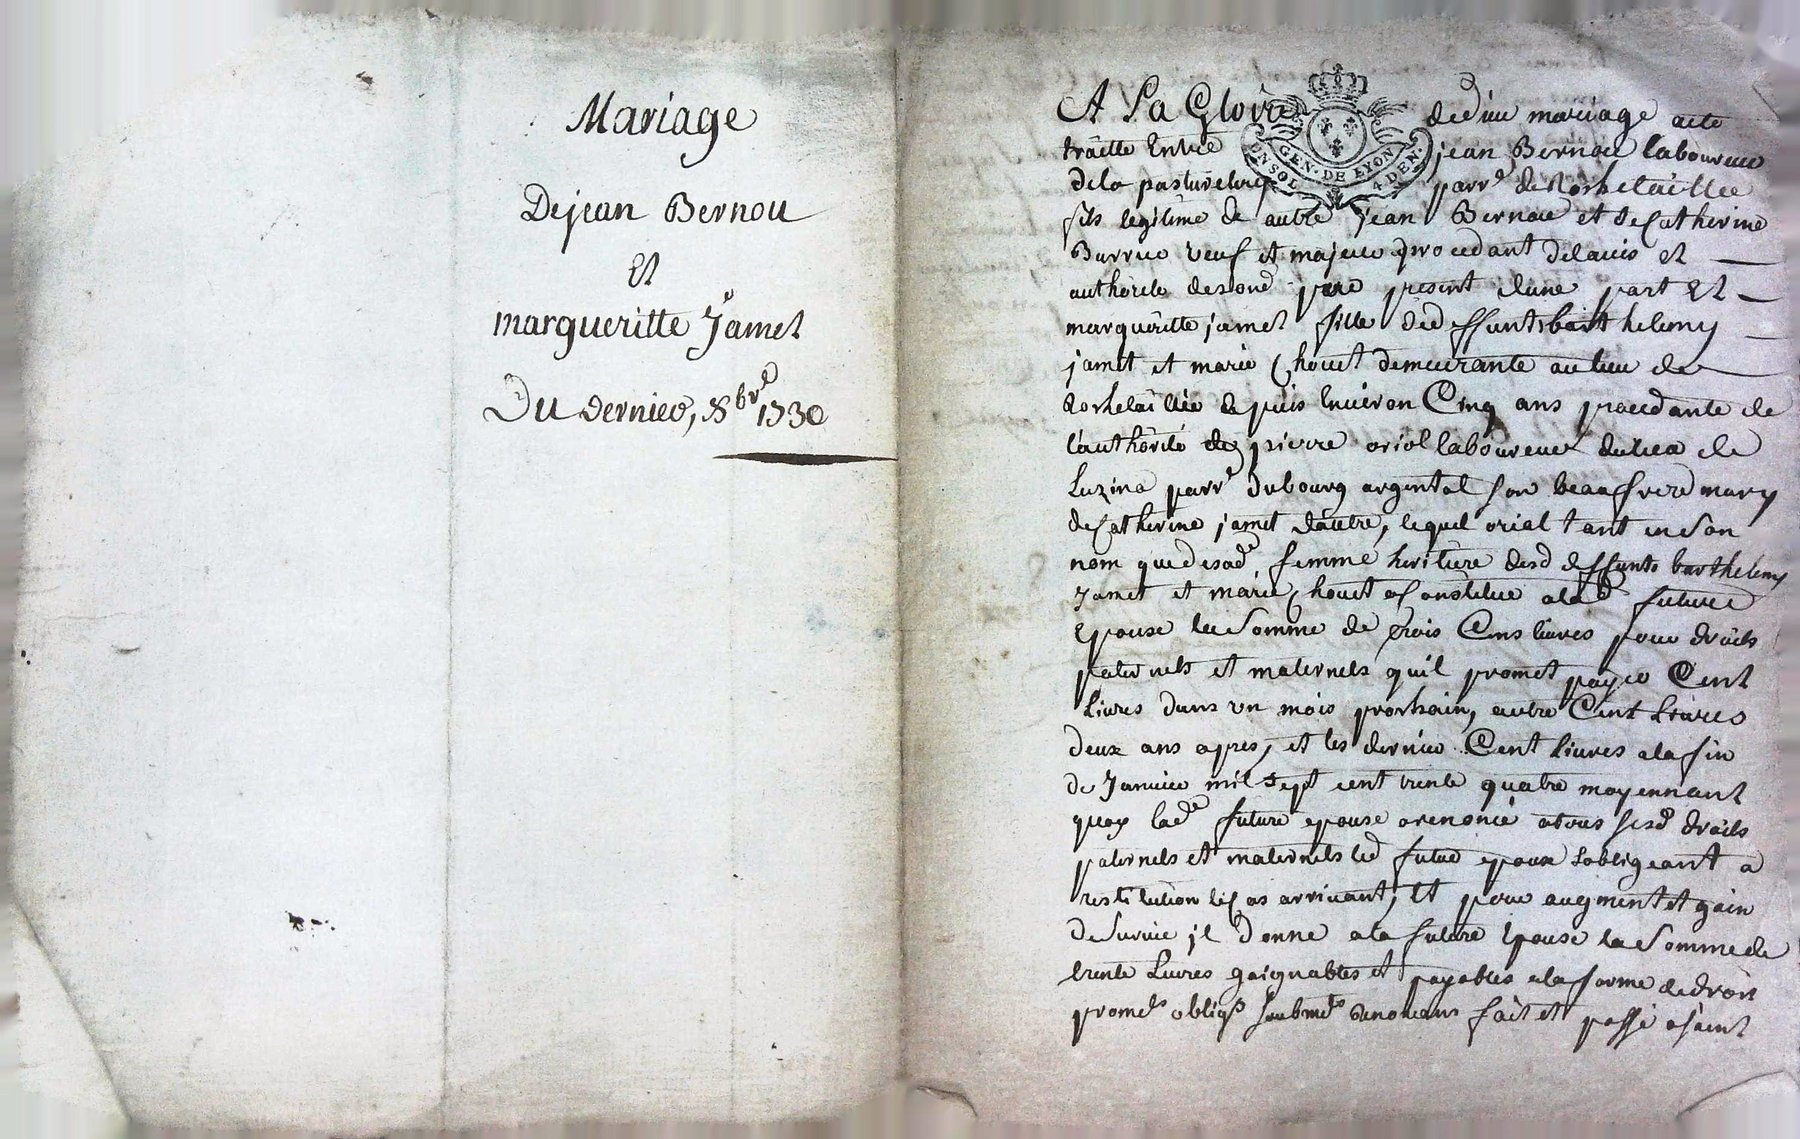 Mariage
De jean Bernou
Et
margueritte Jamet
Du dernier, 8bre 1730
A La Gloire de dieu mariage acte
traitté Entre jean Bernou laboureur
GEN. DE LYON
4 DEN.
de la parre de Rochetaillée
fils legitime de autre jean Bernou et de Catherine
veuf et majeur procedant de lavis et
authorite de sond pere present dune part Et
margueritte jamet fille des deffunts barthelemy
jamet et marie Chouet demeurante au lieu de
Rochetaillée depuis Environ Cinq ans procedante de
l'authorité de pierre oriol laboureur du lieu de
Luzina parre du bourg argental son beaufrere mary
de Catherine jamet dautre, lequel oriol tant en Son
nom que de sade femme heritiere desd deffunts barthelemy
Jamet et marie Chouet a Constitué a lade future
Epouse la Somme de trois Cens livres pour droits
paternels et maternels qu'il promet payer Cent
Livres dans un mois prochain, autre Cent Livres
deux ans apres, et les dernier Cent livres a la fin
de Janvier mil sept cent trente quatre moyennant
quoy lade future epouse a renoncé a tous sesd droits
paternels et maternels led futur epoux sobligeant a
restitution le Cas arrivant, Et pour augment et gain
de Survie jl donne a la future Epouse la Somme de
trente Livres gaignables et payables a la forme de droit
promes obligs soubmes renoncans fait et passé a saint